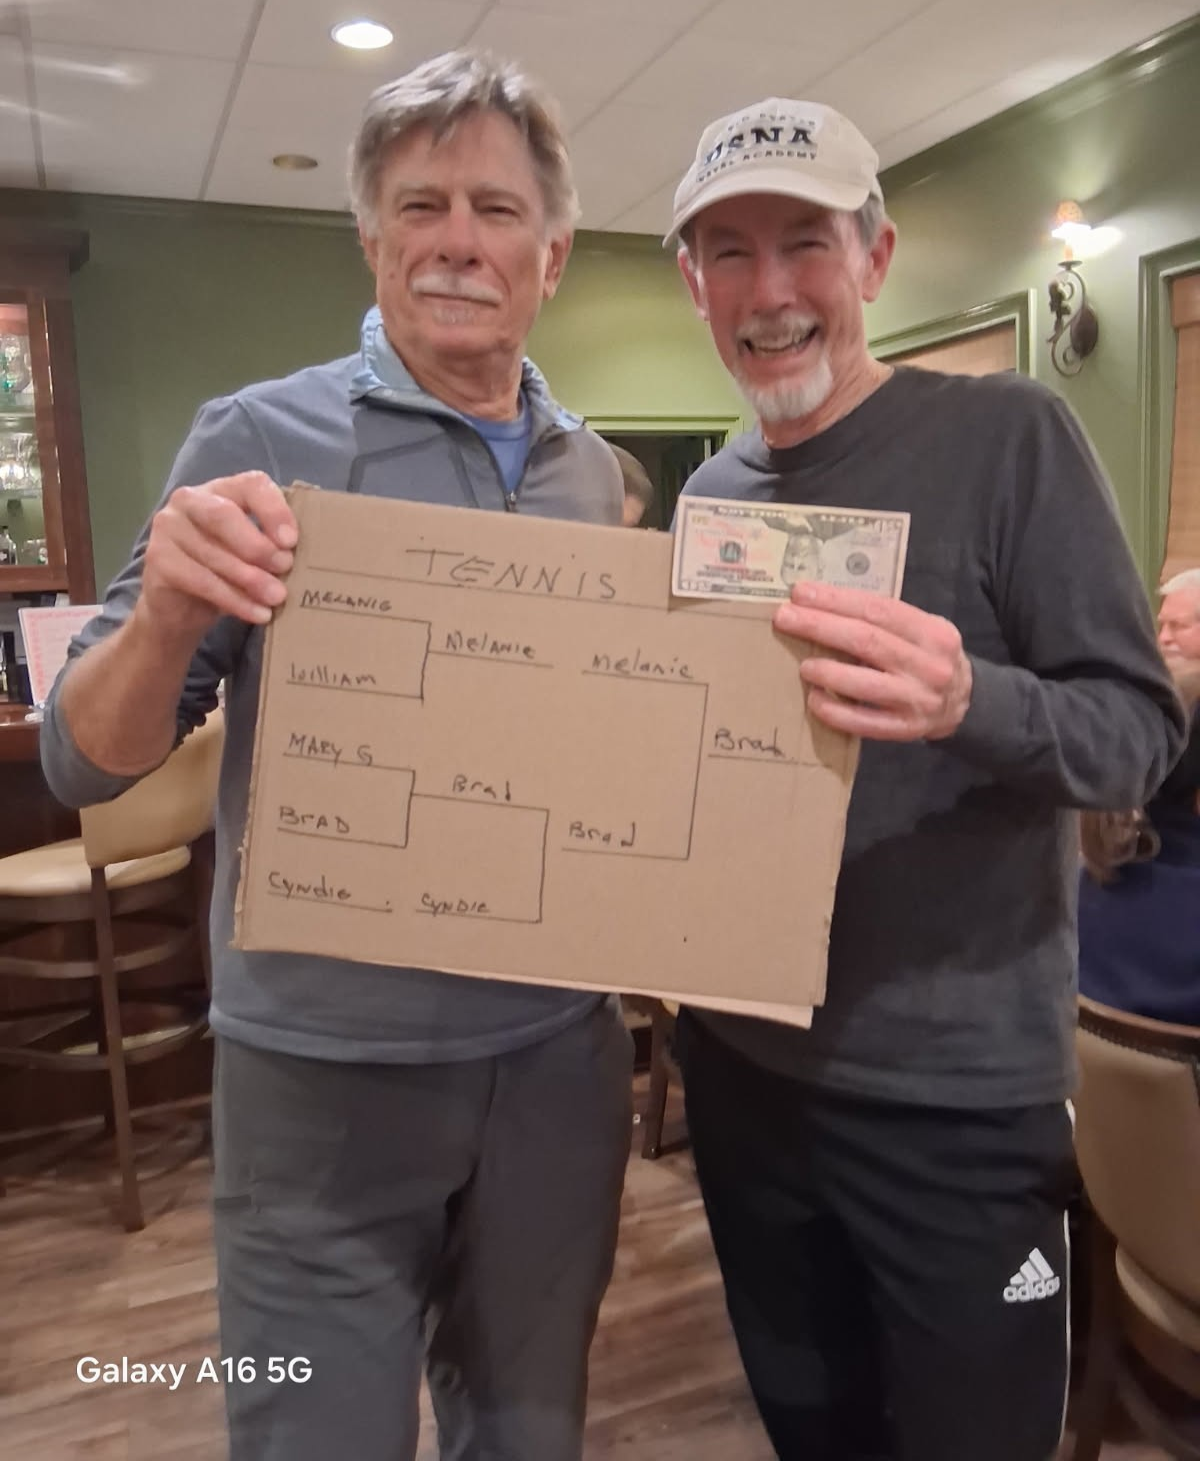 USNA
NAVAL ACADEMY
TENNIS
MELANIE
WILLIAM
MARY G
BRAD
Cyndie
MELANIE
Brad
CYNDIE
Melanie
Brad
Brad
adidas
Galaxy A16 5G